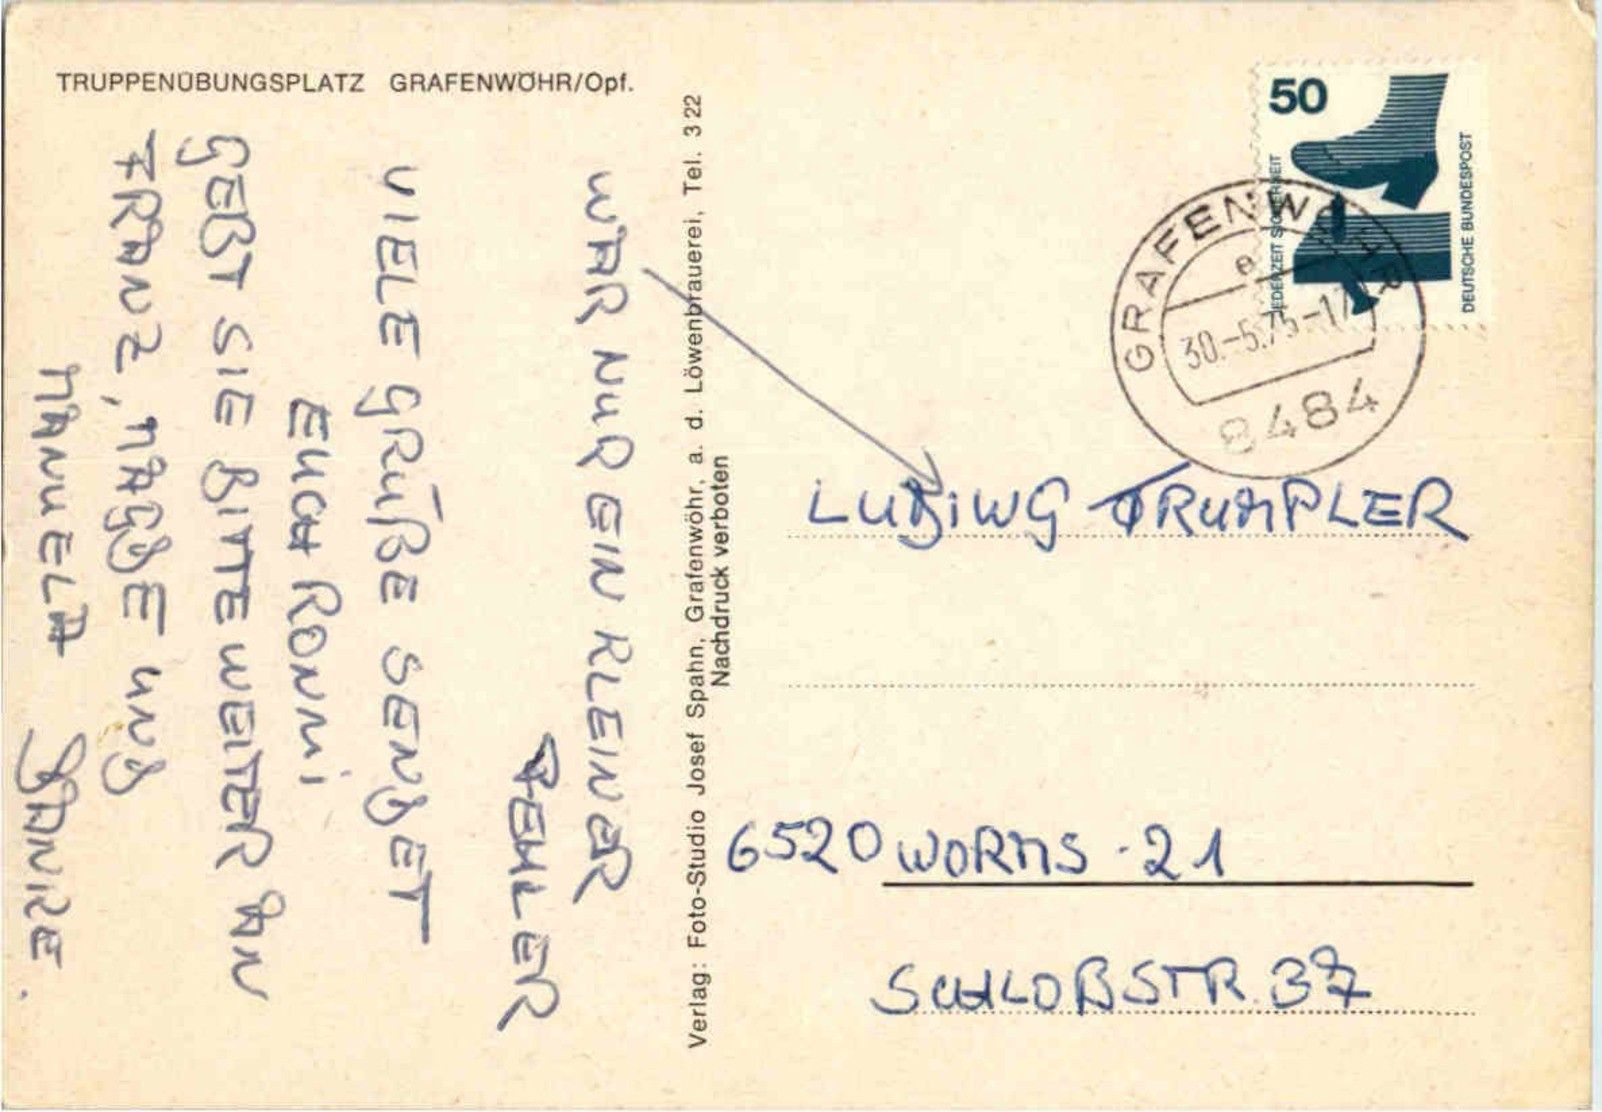 TRUPPENÜBUNGSPLATZ GRAFENWÖHR/Opf.
WAR NUR EIN KLEINER
FEHLER
VIELE GRÜßE SENDET
EUCH RONNI
GEBT SIE BITTE WEITER AN
FRANZ, MAGDE UND
MANUELA DANKE.
Verlag: Foto-Studio Josef Spahn, Grafenwöhr, a. d. Löwenbrauerei, Tel. 3 22
Nachdruck verboten
50
JEDERZEIT SICHERHEIT
DEUTSCHE BUNDESPOST
GRAFENWÖHR
e
30.-5.75-17
8484
LUDIWG TRUMPLER
6520 WORMS - 21
SCHLOßSTR. 37